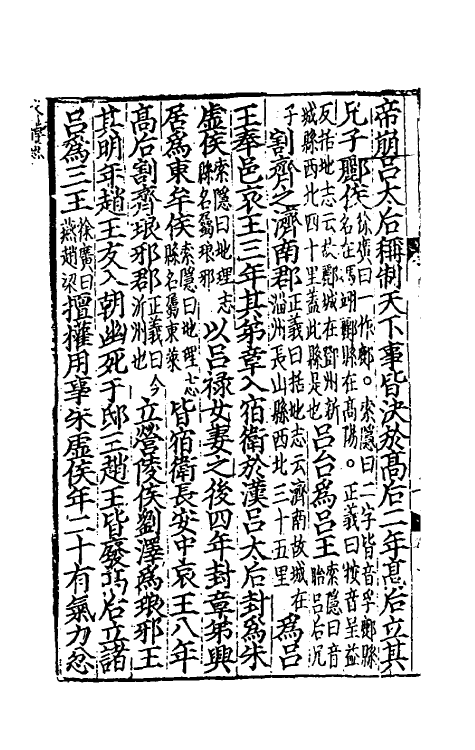 帝崩呂太后稱制天下事皆決於髙后二年髙后立其
兄子酈侯徐廣曰一作鄜。索隱曰二字皆音孚鄜縣名在馮翊酈縣在髙陽。正義曰按音呈益
反括地志云故酈城在鄧州新城縣西北四十里蓋此縣是也呂台爲呂王索隱曰音胎呂后兄
子割齊之濟南郡正義曰括地志云濟南故城在淄州長山縣西北三十五里爲呂
王奉邑哀王三年其弟章入宿衛於漢呂太后封爲朱
虛侯索隱曰地理志縣名屬琅邪以呂祿女妻之後四年封章弟興
居爲東牟侯索隱曰地理志縣名屬東萊皆宿衛長安中哀王八年
髙后割齊琅邪郡正義曰今沂州也立營陵侯劉澤爲琅邪王
其明年趙王友入朝幽死于邸三趙王皆廢髙后立諸
呂爲三王徐廣曰燕趙梁擅權用事朱虛侯年二十有氣力忿